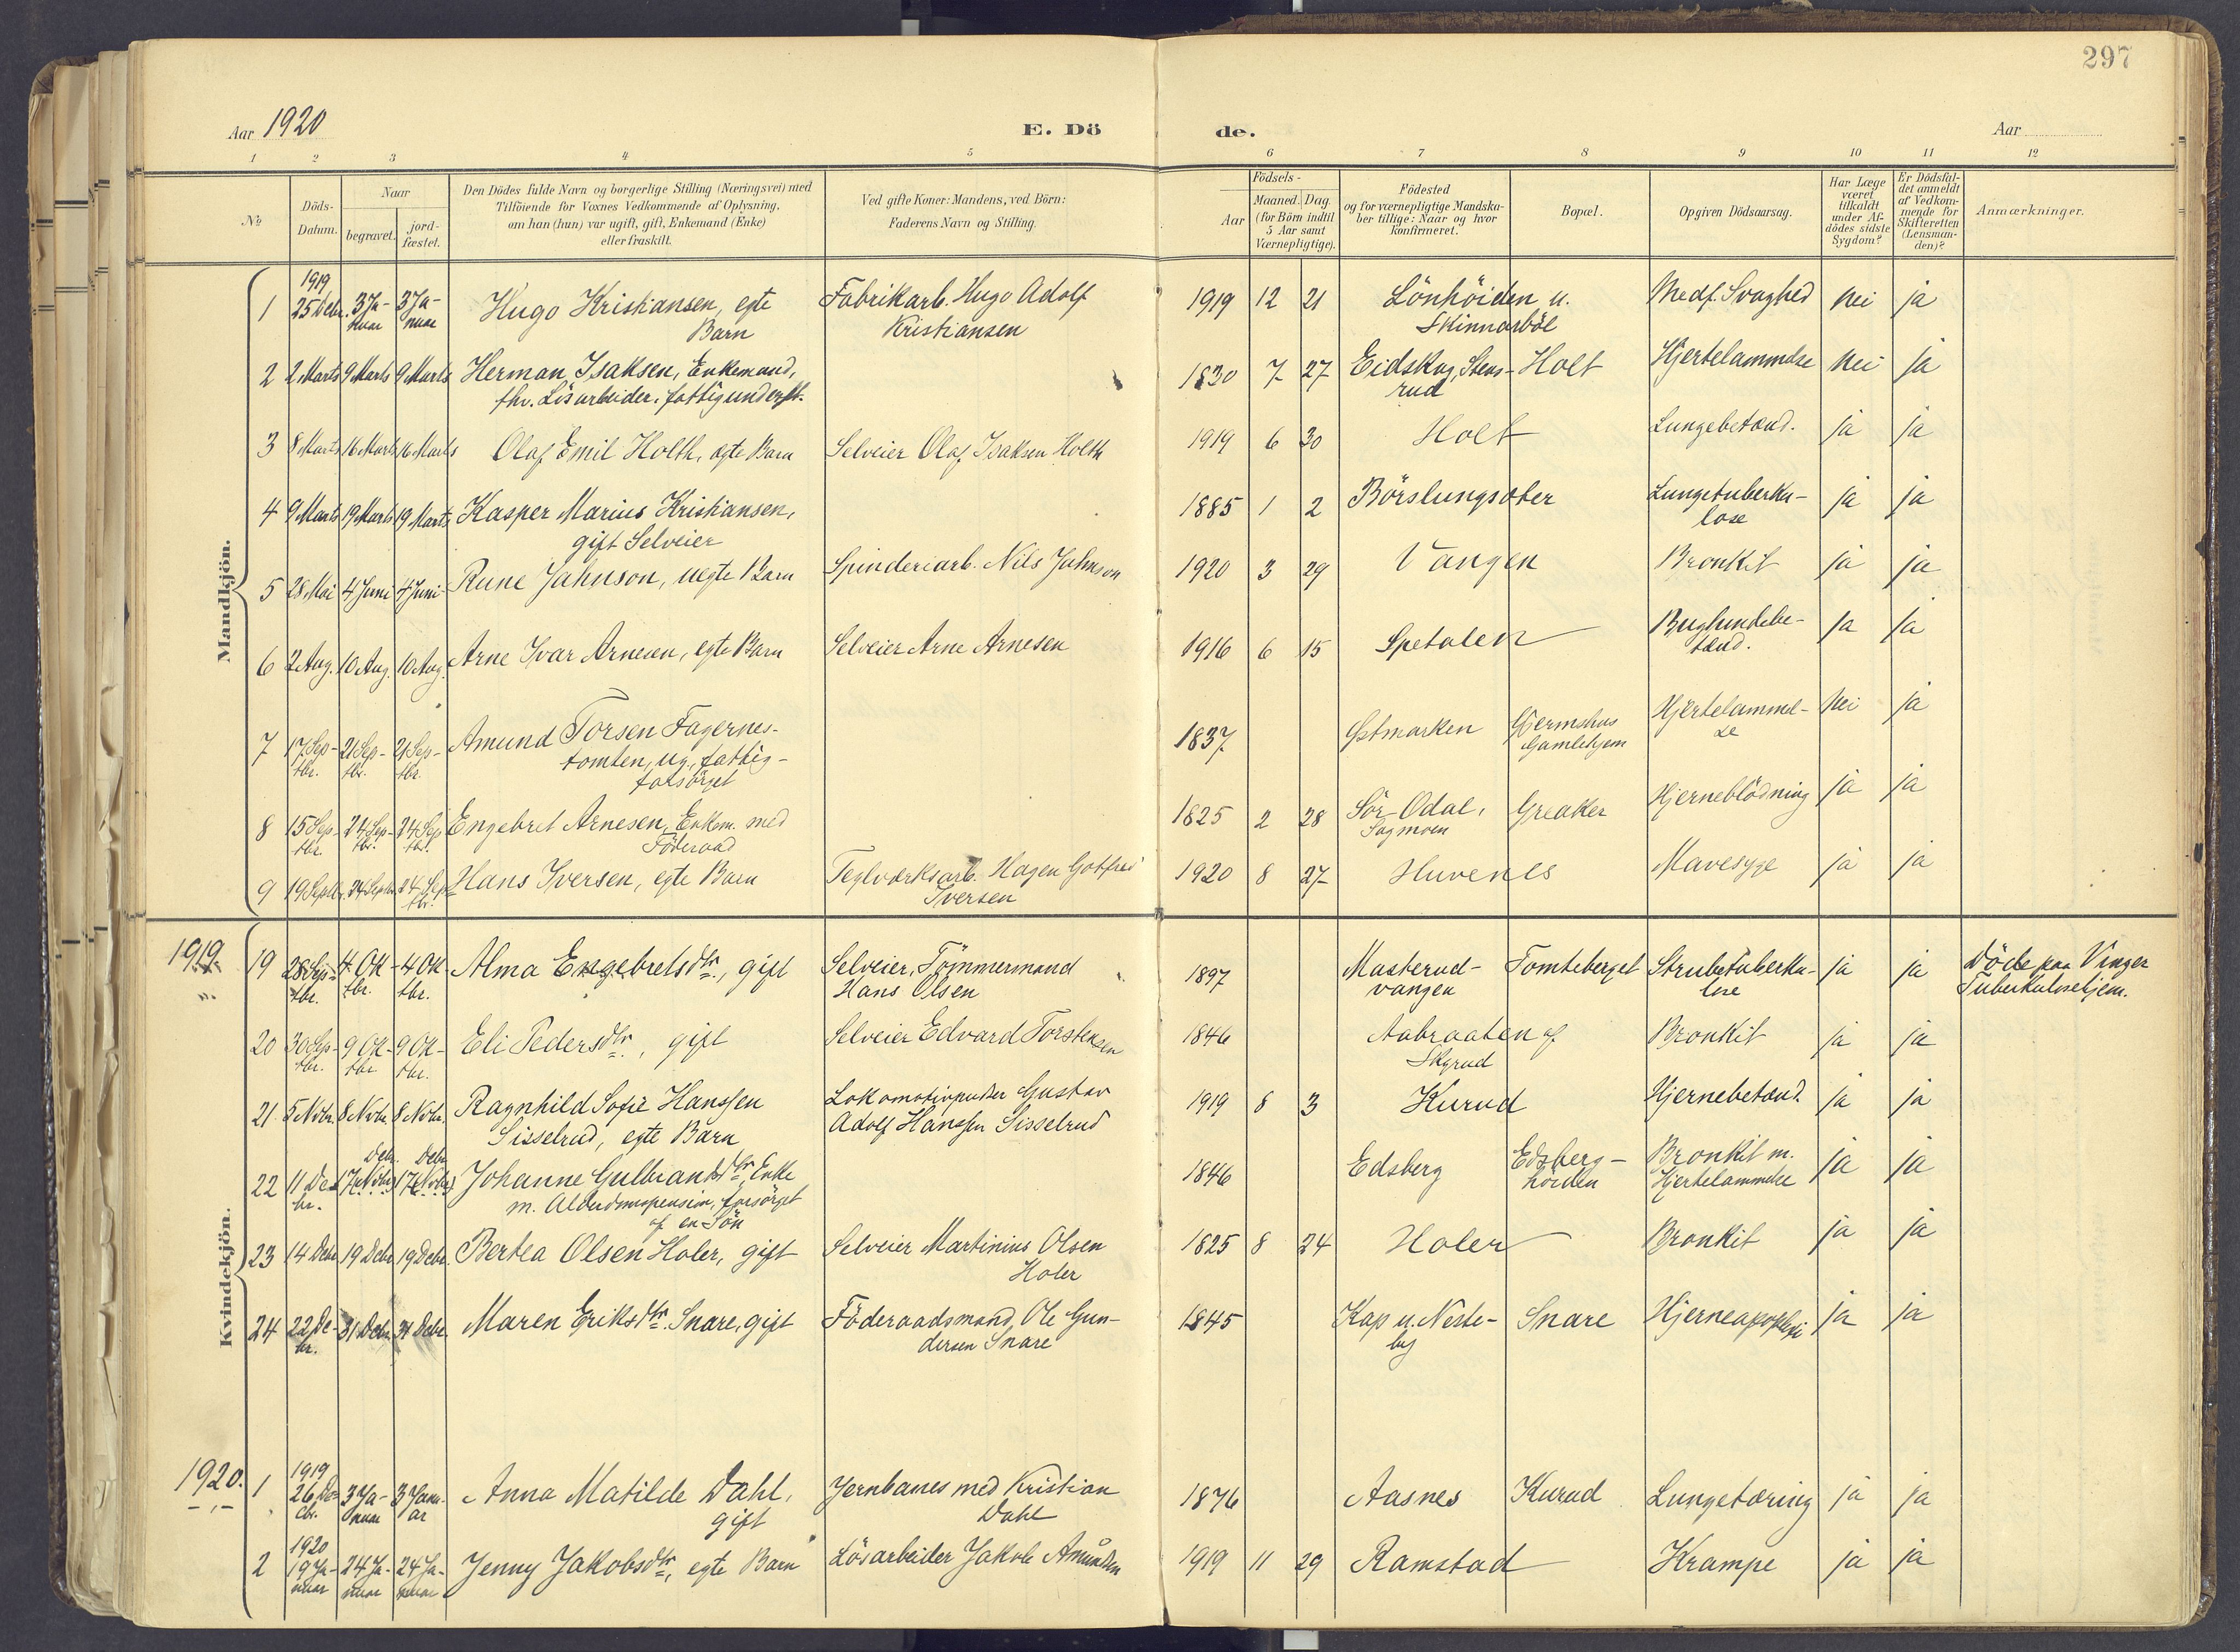 297
Aar 1920
E. Dö
de.
Aar
1 2 3 4 5 6 7 8 9 10 11 12
№
Döds-Datum.
Naar
begravet.
jord-fæstet.
Den Dödes fulde Navn og borgerlige Stilling (Næringsvei) med
Tilföiende for Voxnes Vedkommende af Oplysning,
om han (hun) var ugift, gift, Enkemand (Enke)
eller fraskilt.
Ved gifte Koner: Mandens, ved Börn:
Faderens Navn og Stilling.
Födsels-
Aar
Maaned. Dag.
(for Börn indtil
5 Aar samt
Værnepligtige).
Födested
og for værnepligtige Mandska-
ber tillige: Naar og hvor
konfirmeret.
Bopæl.
Opgiven Dödsaarsag.
Har Læge
været
tilkaldt
under Af-
dödes sidste
Sygdom?
Er Dödsfal-
det anmeldt
af Vedkom-
mende for
Skifteretten
(Lensman-
den)?
Anmærkninger.
Mandkjön.
1 1919 25 Debr. 3 Ja-nuar 3 Ja-nuar Hugo Kristiansen, egte Barn Fabrikarb. Hugo Adolf Kristiansen 1919 12 21 Lönhöiden u. Skinnarböl Medf. Svaghed Nei ja
2 2 Marts 9 Marts 9 Marts Herman Isaksen, Enkemand, fhv. Lösarbeider, fattigunderst. 1830 7 27 Eidskog, Stensrud Holt Hjertelammelse Nei ja
3 8 Marts 16 Marts 16 Marts Olaf Emil Holth, egte Barn Selveier Olaf Isaksen Holth 1919 6 30 Holt Lungebetænd. ja ja
4 9 Marts 19 Marts 19 Marts Kasper Marius Kristiansen, gift Selveier 1885 1 2 Börslungsæter Lungetuberku-lose ja ja
5 28 Mai 4 Juni 4 Juni Rune Jahnson, uegte Barn Spinderiarb. Nils Jahnson 1920 3 29 Vangen Bronkit ja ja
6 2 Aug. 10 Aug. 10 Aug. Arne Ivar Arnesen, egte Barn Selveier Arne Arnesen 1916 6 15 Spetalen Bughindebe-tænd. Ja ja
7 17 Sep-tbr. 21 Sep-tbr. 21 Sep-tbr. Amund Torsen Fagernes-tomten, ug., fattig-forsörget 1837 Östmarken Gjermshus Gamlehjem Hjertelammel-se Nei ja
8 15 Sep-tbr. 24 Sep-tbr. 24 Sep-tbr. Engebret Arnesen, Enkem. med Föderaad 1825 2 28 Sör-Odal, Sagmoen Greaker Hjerneblödning ja ja
9 19 Septbr. 24 Septbr. 24 Sep-tbr. Hans Iversen, egte Barn Teglværksarb. Hagen Gotfred Iversen 1920 8 27 Huvenes Mavesyge ja ja
Kvindekjön.
1919.
19 28 Sep-tbr. 4 Ok-tbr. 4 Ok-tbr. Alma Engebretsdtr., gift Selveier, Tömmermand Hans Olsen 1897 Masterud-vangen Tomteberget Strubetuberku-lose ja ja Döde paa Vinger Tuberkulosehjem.
20 30 Sep-tbr. 9 Ok-tbr. 9 Ok-tbr. Eli Pedersdtr., gift Selveier Edvard Torstensen 1846 Aabraaten af Skyrud Bronkit ja ja
21 5 Novbr. 8 Novbr. 8 Novbr. Ragnhild Sofie Hanssen Sisselrud, egte Barn Lokomotivpudser Gustav Adolf Hanssen Sisselrud 1919 8 3 Kurud Hjernebetænd. ja ja
22 11 De-br. 17 (Novbr.) Debr. 17 (Novbr.) Debr. Johanne Gulbrandsdtr. Enke m. Alderdomspension, forsörget af en Sön 1846 Edsberg Edsberg-höiden Bronkit m. Hjertelammelse ja ja
23 14 Debr. 19 Debr. 19 Debr. Bertea Olsen Holer, gift Selveier Martinius Olsen Holer 1825 8 24 Holer Bronkit ja ja
24 22 De-br. 31 Debr. 31 Debr. Maren Eriksdtr. Snare, gift Föderaadsmand Ole Gun-dersen Snare 1845 Kap u. Neste-by Snare Hjerneapoplexi ja ja
1920.
1 1919 26 De-cbr. 3 Ja-nuar 3 Janu-ar Anna Matilde Dahl, gift Jernbanesmed Kristian Dahl 1876 Aasnes Kurud Lungetæring ja ja
2 1920 19 Ja-nuar 24 Ja-nuar 24 Ja-nuar Jenny Jakobsdtr., egte Barn Lösarbeider Jakob Amundsen 1919 11 29 Ramstad Krampe ja ja